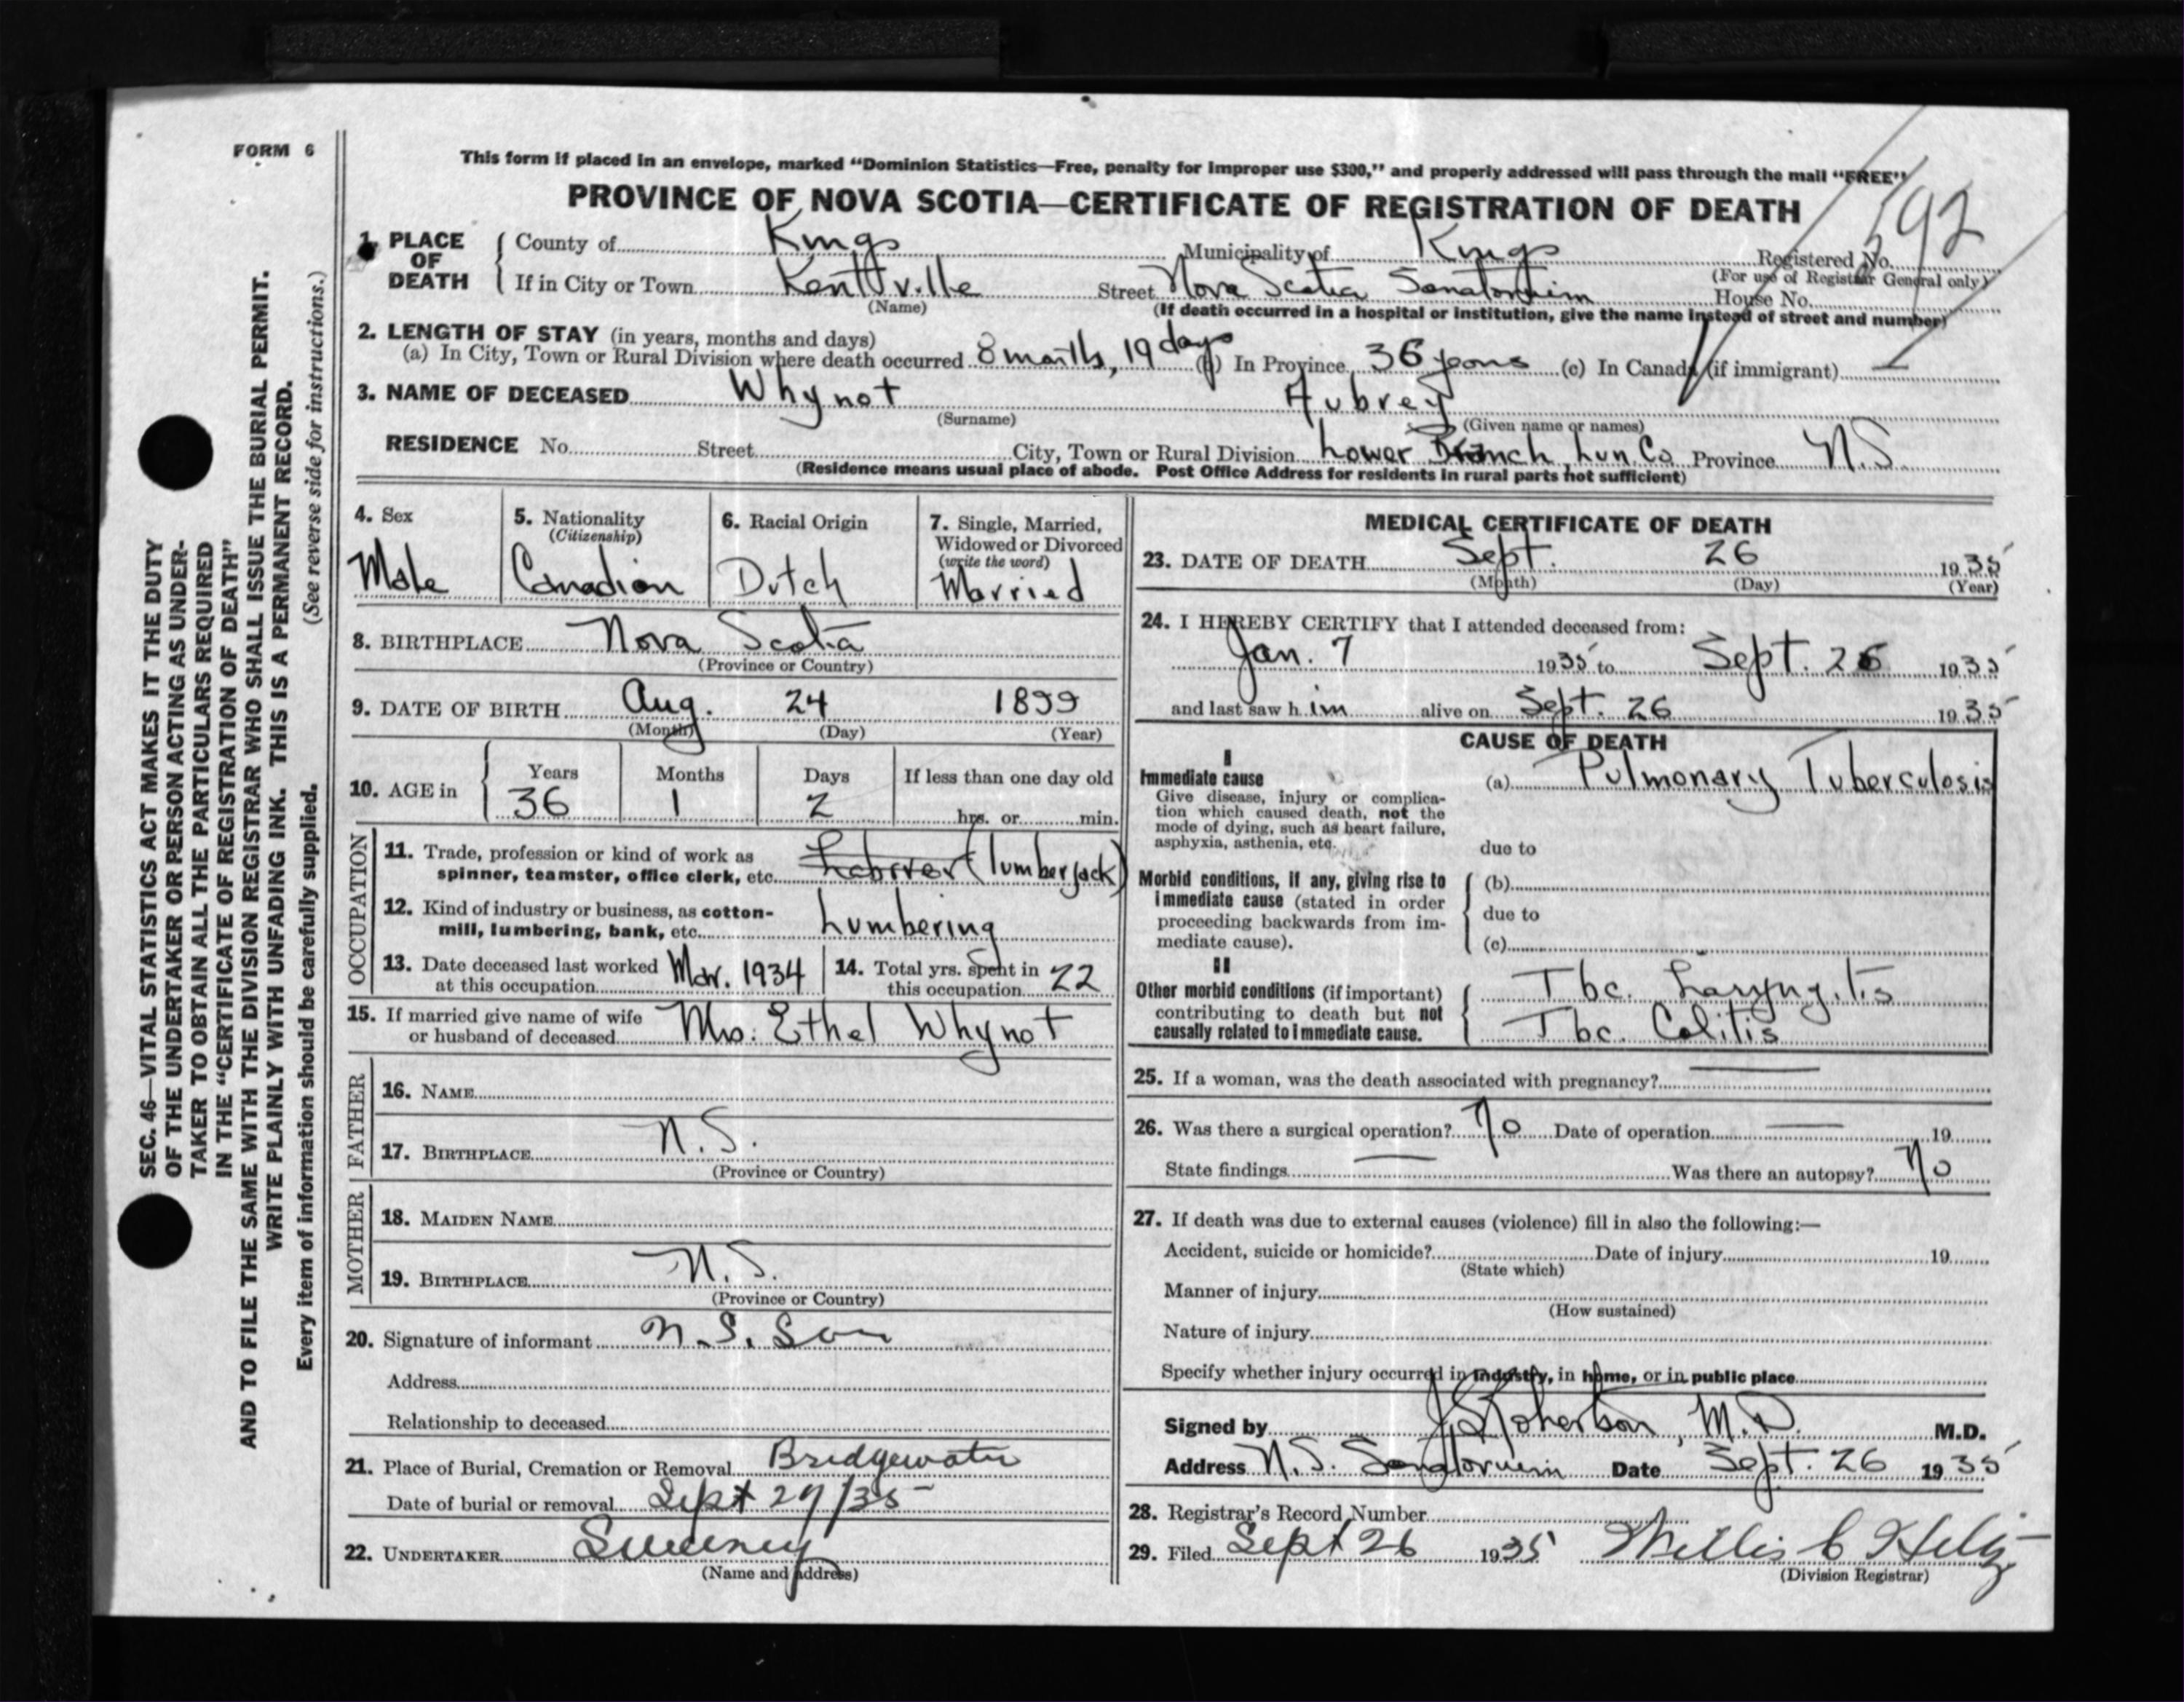 FORM 6
This form if placed in an envelope, marked "Dominion Statistics—Free, penalty for improper use $300," and properly addressed will pass through the mail "FREE"
PROVINCE OF NOVA SCOTIA—CERTIFICATE OF REGISTRATION OF DEATH
1. PLACE OF DEATH
County of Kings Municipality of Kings Registered No.
(For use of Registrar General only)
If in City or Town Kentville Street Nova Scotia Sanatorium House No.
(Name) (If death occurred in a hospital or institution, give the name instead of street and number)
2. LENGTH OF STAY (in years, months and days)
(a) In City, Town or Rural Division where death occurred 8 months, 19 days (b) In Province 36 years (c) In Canada (if immigrant)
3. NAME OF DECEASED Whynot Aubrey
(Surname) (Given name or names)
RESIDENCE No. Street City, Town or Rural Division Lower Branch, Lun. Co. Province N.S.
(Residence means usual place of abode. Post Office Address for residents in rural parts not sufficient)
4. Sex
Male
5. Nationality
(Citizenship)
Canadian
6. Racial Origin
Dutch
7. Single, Married,
Widowed or Divorced
(write the word)
Married
8. BIRTHPLACE Nova Scotia
(Province or Country)
9. DATE OF BIRTH Aug. 24 1899
(Month) (Day) (Year)
10. AGE in
Years Months Days If less than one day old
36 1 2 hrs. or min.
OCCUPATION
11. Trade, profession or kind of work as
spinner, teamster, office clerk, etc. Laborer (lumberjack)
12. Kind of industry or business, as cotton-
mill, lumbering, bank, etc. Lumbering
13. Date deceased last worked
at this occupation Mar. 1934
14. Total yrs. spent in
this occupation 22
15. If married give name of wife
or husband of deceased Mrs. Ethel Whynot
FATHER
16. NAME
17. BIRTHPLACE N.S.
(Province or Country)
MOTHER
18. MAIDEN NAME
19. BIRTHPLACE N.S.
(Province or Country)
20. Signature of informant N.S. San
Address
Relationship to deceased
21. Place of Burial, Cremation or Removal Bridgewater
Date of burial or removal Sept 29/35
22. UNDERTAKER Sweeney
(Name and address)
MEDICAL CERTIFICATE OF DEATH
23. DATE OF DEATH Sept. 26 1935
(Month) (Day) (Year)
24. I HEREBY CERTIFY that I attended deceased from:
Jan. 7 1935 to Sept. 26 1935
and last saw him alive on Sept. 26 1935
CAUSE OF DEATH
I
Immediate cause (a) Pulmonary Tuberculosis
Give disease, injury or complica-
tion which caused death, not the
mode of dying, such as heart failure,
asphyxia, asthenia, etc.
due to
Morbid conditions, if any, giving rise to (b)
immediate cause (stated in order
proceeding backwards from im-
mediate cause).
due to
(c)
II
Other morbid conditions (if important) Tbc. Laryngitis
contributing to death but not
causally related to immediate cause. Tbc. Colitis
25. If a woman, was the death associated with pregnancy? —
26. Was there a surgical operation? No Date of operation — 19
State findings — Was there an autopsy? No
27. If death was due to external causes (violence) fill in also the following:—
Accident, suicide or homicide? Date of injury 19
(State which)
Manner of injury
(How sustained)
Nature of injury
Specify whether injury occurred in industry, in home, or in public place
Signed by M.D. M.D.
Address N.S. Sanatorium Date Sept. 26 1935
28. Registrar's Record Number
29. Filed Sept 26 1935 Willis C
(Division Registrar)
SEC. 46—VITAL STATISTICS ACT MAKES IT THE DUTY
OF THE UNDERTAKER OR PERSON ACTING AS UNDER-
TAKER TO OBTAIN ALL THE PARTICULARS REQUIRED
IN THE "CERTIFICATE OF REGISTRATION OF DEATH"
AND TO FILE THE SAME WITH THE DIVISION REGISTRAR WHO SHALL ISSUE THE BURIAL PERMIT.
WRITE PLAINLY WITH UNFADING INK. THIS IS A PERMANENT RECORD.
Every item of information should be carefully supplied. (See reverse side for instructions.)